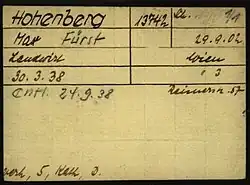 Hohenberg 13742
Max Fürst 29.9.02
Landwirt Wien
30.3.38 " 3
24.9.38
5, Kath, 3.